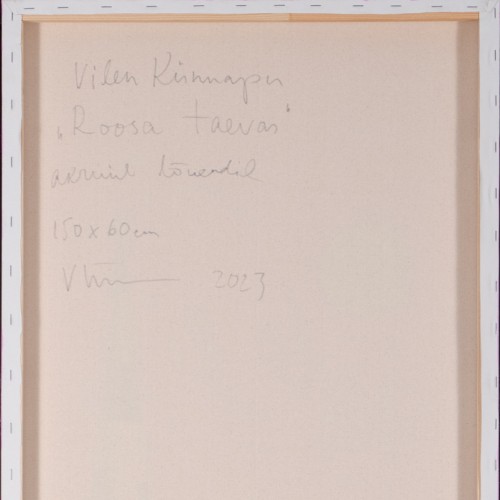 Vilen Künnapu
„Roosa taevas"
akrüül lõuendil
150x60cm
2023